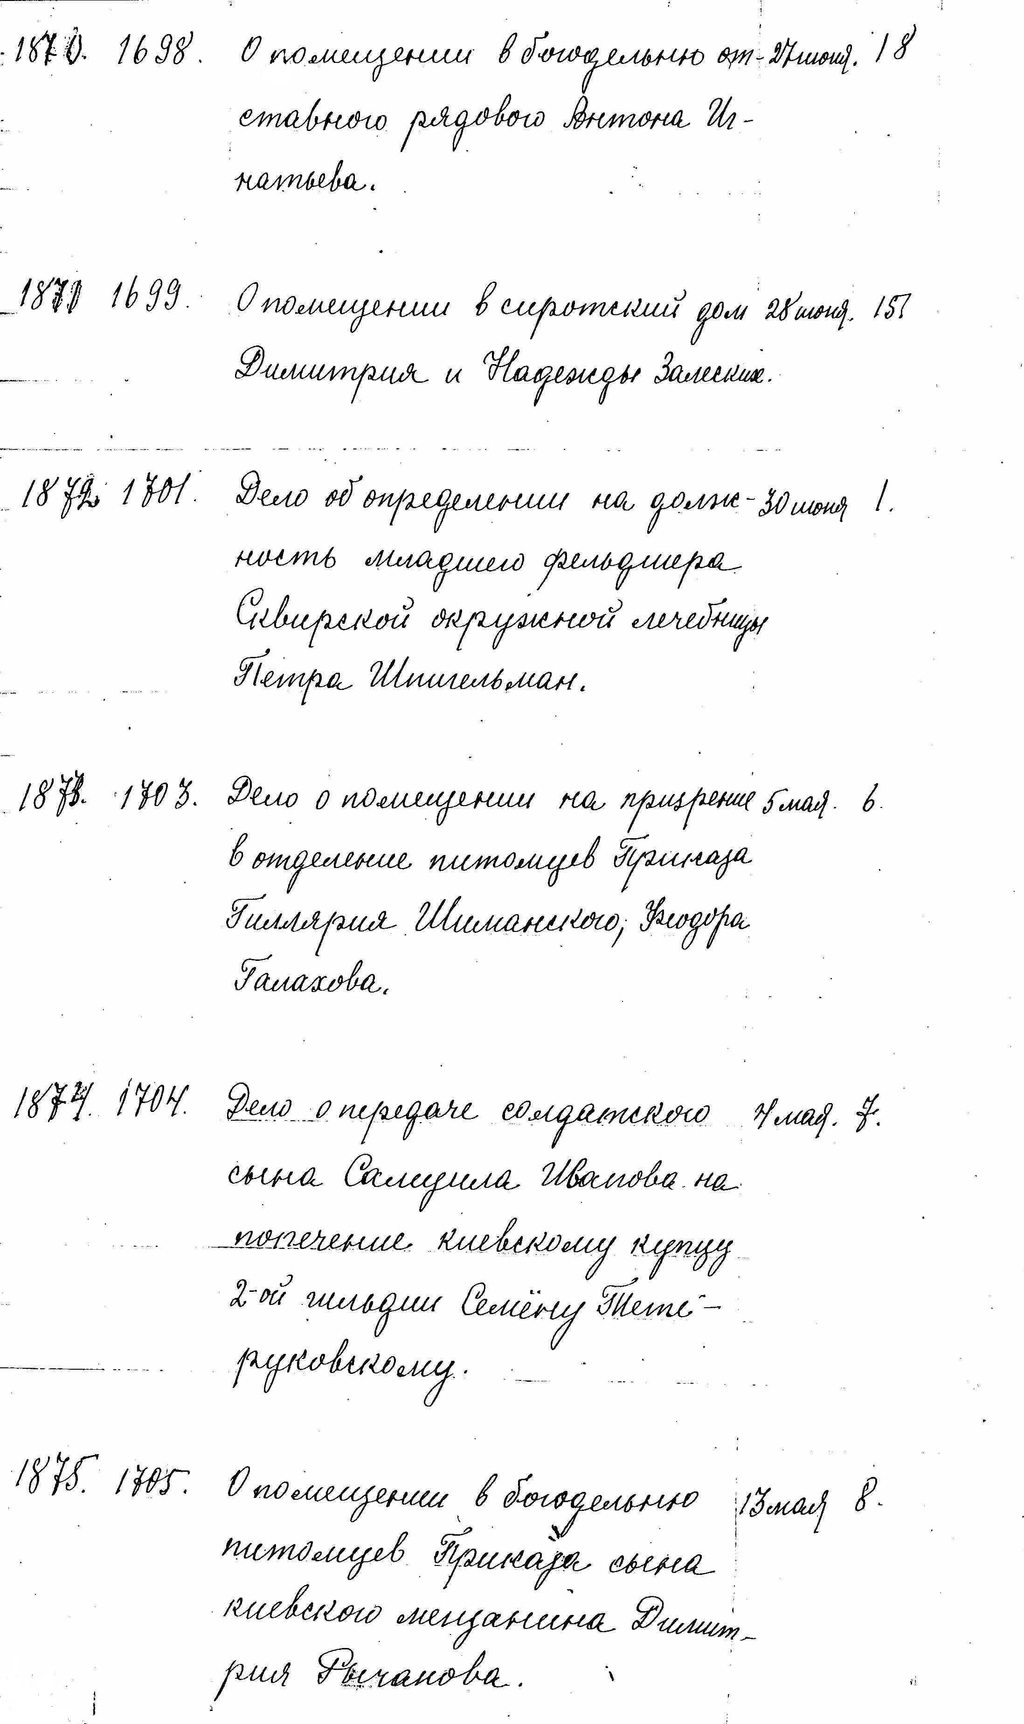 1870. 1698. О помещении в богодельню от- 27 июня. 18
ставного рядового Антона Иг-
натьева.
1871 1699. О помещении в сиротский дом 28 июня. 151
Димитрия и Надежды Залеских.
1872 1701. Дело об определении на долж- 30 июня 1.
ность младшего фельдшера
Сквирской окружной лечебницы
Петра Шпигельман.
1873. 1703. Дело о помещении на призрение 5 мая. 6.
в отделение питомцев Приказа
Гиллярия Шиманского, Феодора
Галахова.
1874. 1704. Дело о передаче солдатского 4 мая. 7.
сына Самуила Иванова на
попечение киевскому купцу
2-ой гильдии Семёну Тете-
руковскому.
1875. 1705. О помещении в богодельню 13 мая 8.
питомцев Приказа сына
киевского мещанина Димит-
рия Рычанова.